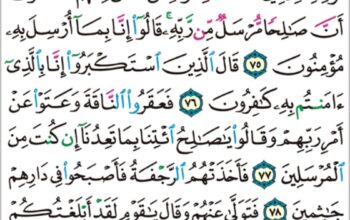 أَنَّ صَٰلِحًا مُّرْسَلٌ مِّن رَّبِّهِۦ ۚ قَالُوٓا۟ إِنَّا بِمَآ أُرْسِلَ بِهِۦ
مُؤْمِنُونَ ٧٥ قَالَ ٱلَّذِينَ ٱسْتَكْبَرُوٓا۟ إِنَّا بِٱلَّذِىٓ
ءَامَنتُم بِهِۦ كَٰفِرُونَ ٧٦ فَعَقَرُوا۟ ٱلنَّاقَةَ وَعَتَوْا۟ عَنْ
أَمْرِ رَبِّهِمْ وَقَالُوا۟ يَٰصَٰلِحُ ٱئْتِنَا بِمَا تَعِدُنَآ إِن كُنتَ مِنَ
ٱلْمُرْسَلِينَ ٧٧ فَأَخَذَتْهُمُ ٱلرَّجْفَةُ فَأَصْبَحُوا۟ فِى دَارِهِمْ
جَٰثِمِينَ ٧٨ فَتَوَلَّىٰ عَنْهُمْ وَقَالَ يَٰقَوْمِ لَقَدْ أَبْلَغْتُكُمْ